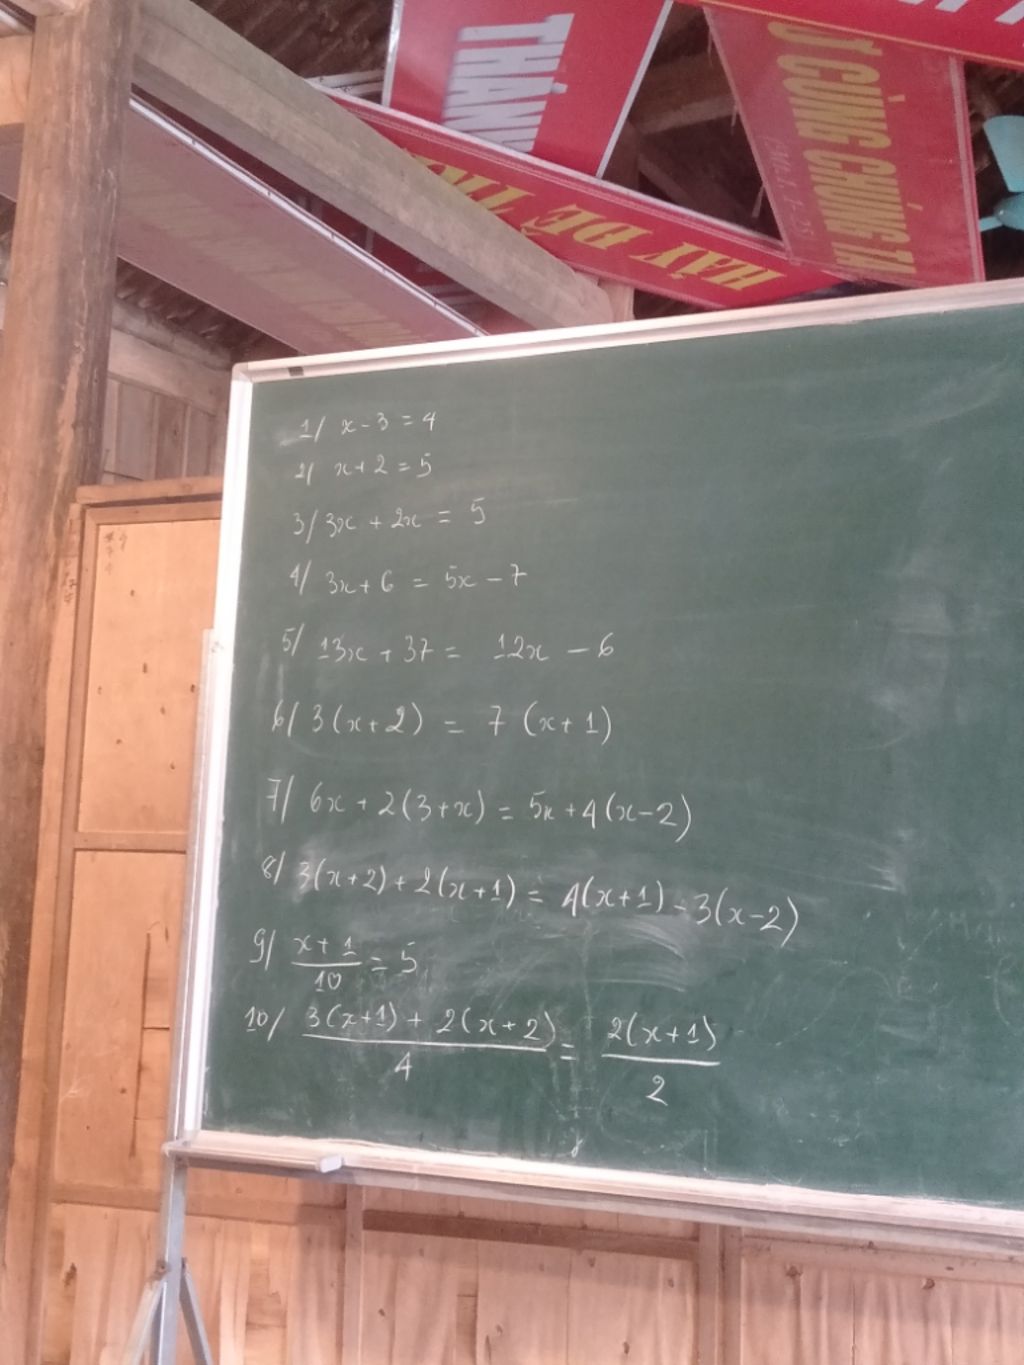 THÀNH
Ơ CÙNG CHÚNG TA
HÃY ĐỂ
1/ x - 3 = 4
2/ x + 2 = 5
3/ 3x + 2x = 5
4/ 3x + 6 = 5x - 7
5/ 13x + 37 = 12x - 6
6/ 3(x + 2) = 7 (x + 1)
7/ 6x + 2(3 + x) = 5x + 4(x - 2)
8/ 3(x + 2) + 2(x + 1) = 4(x + 1) - 3(x - 2)
9/ (x + 1)/10 = 5
10/ (3(x + 1) + 2(x + 2))/4 = 2(x + 1)/2